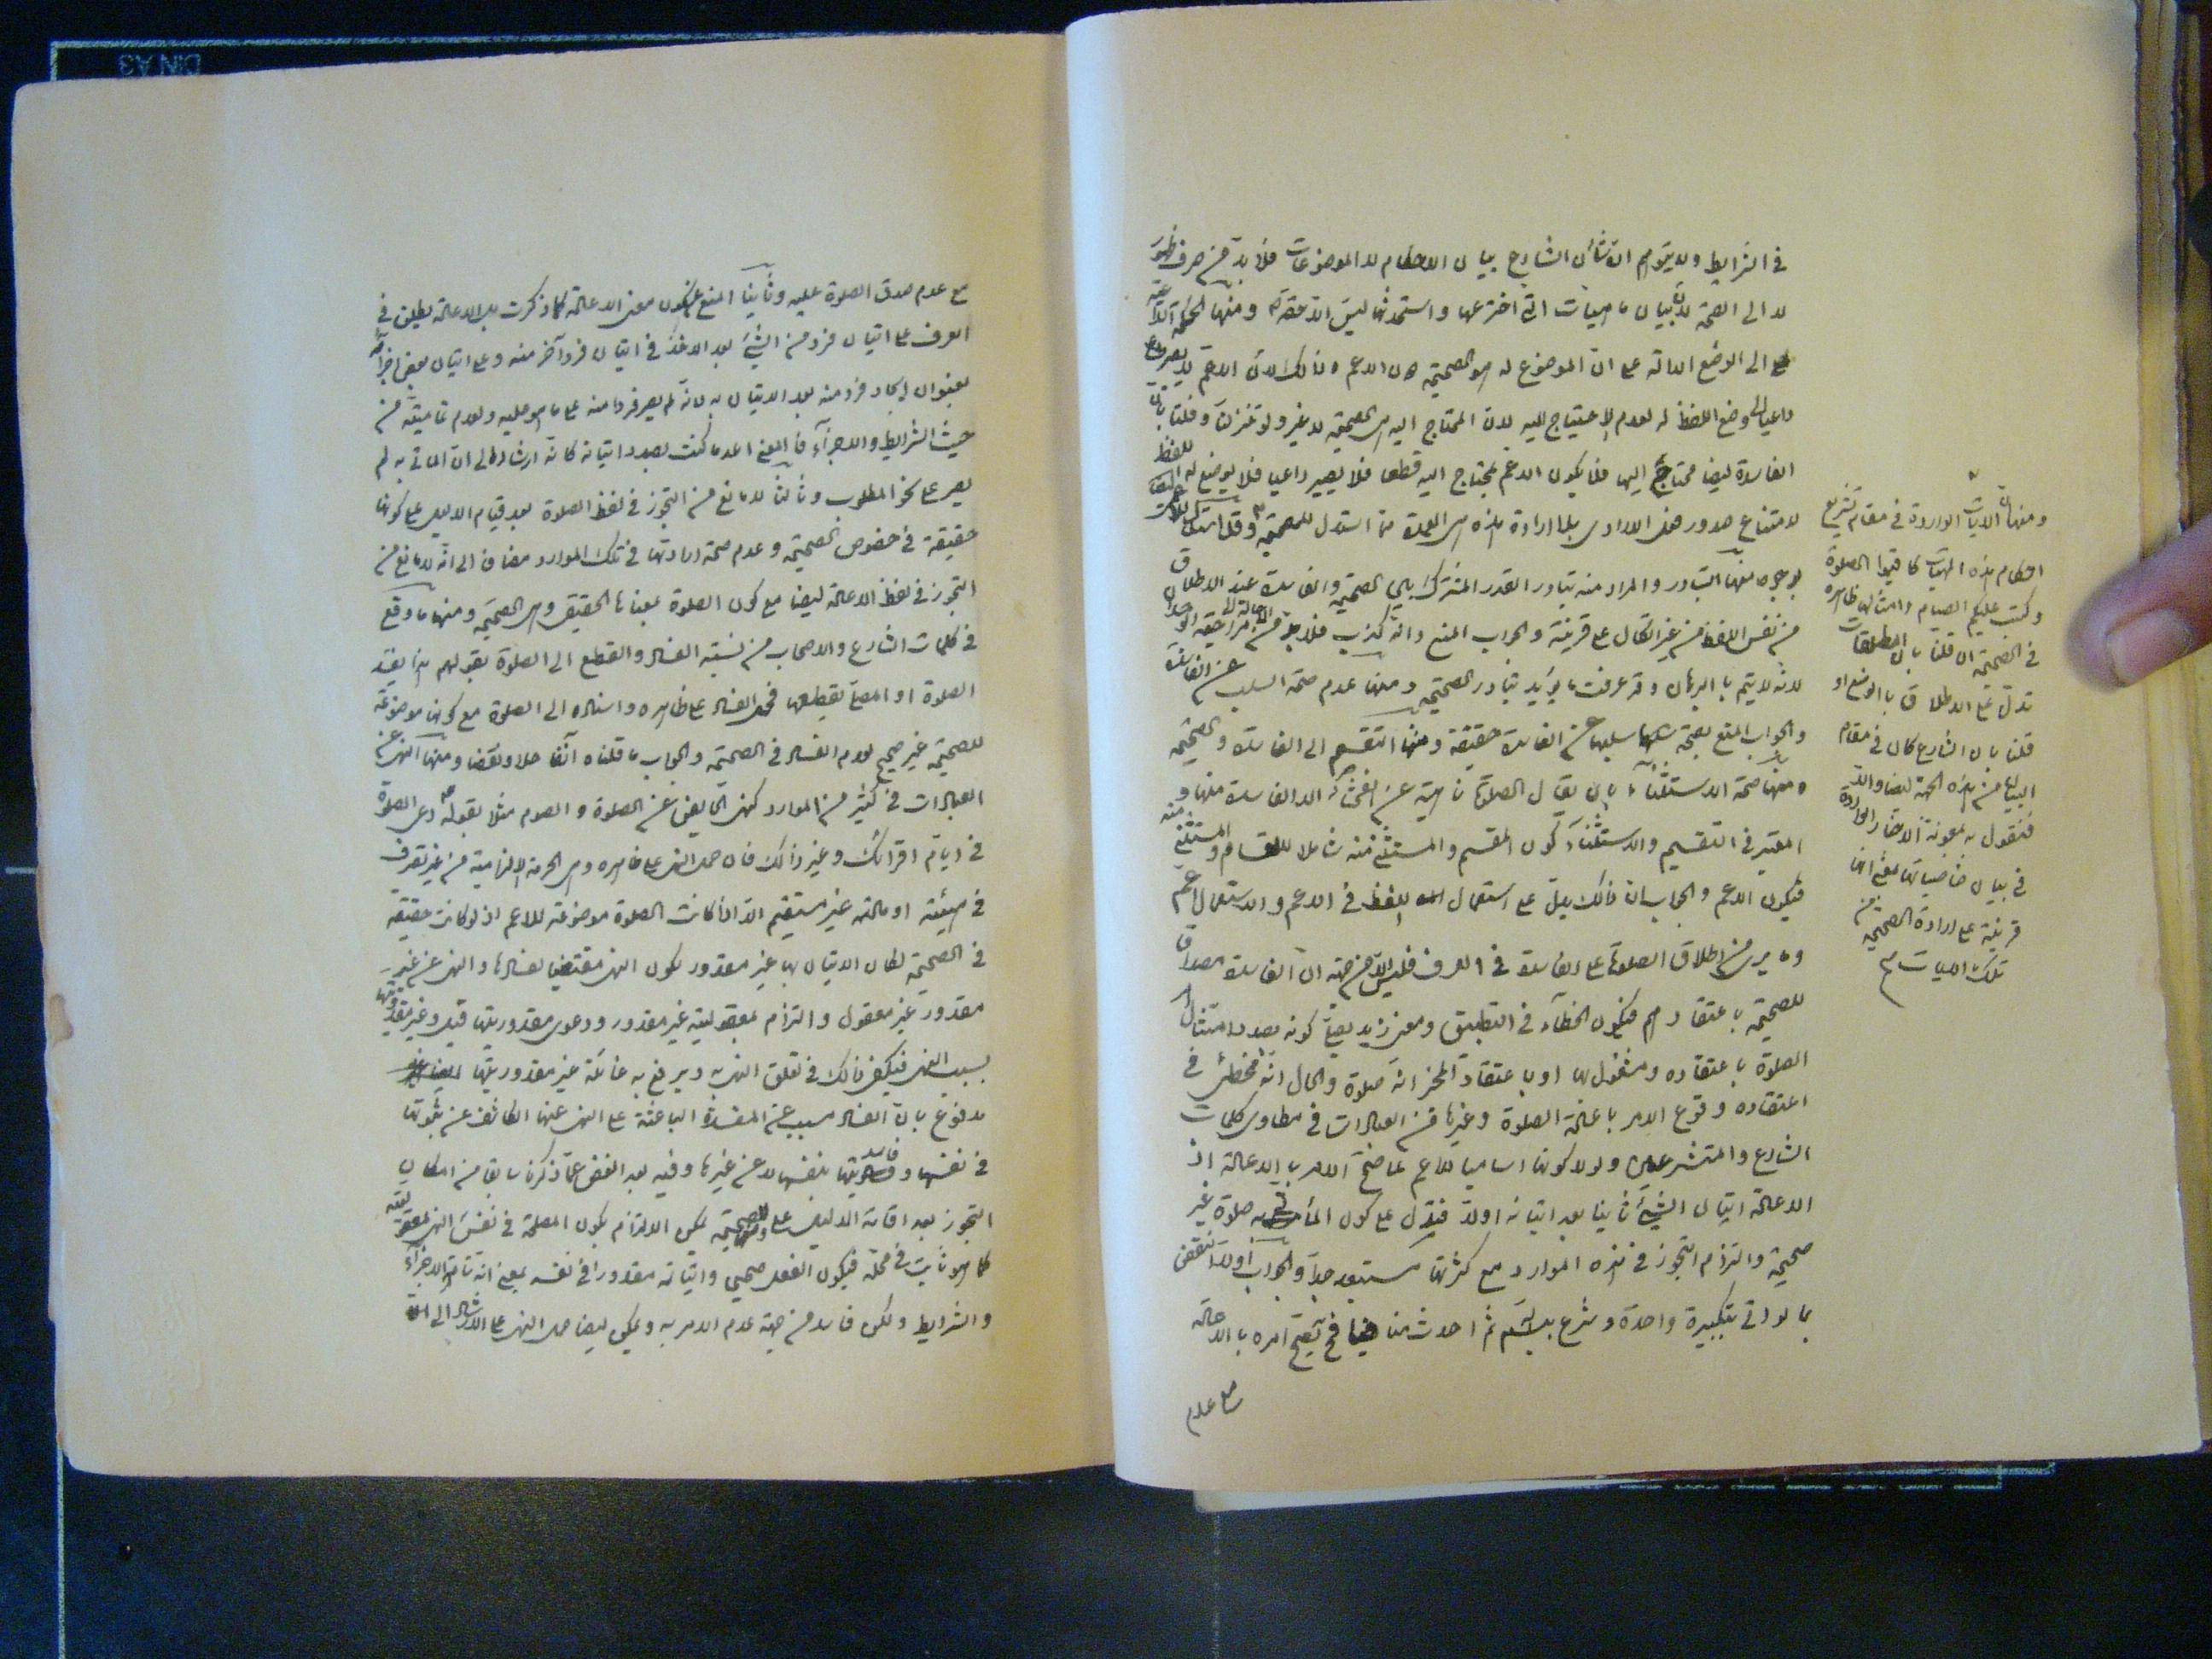 في الشرايط ولا يتوهم ان شأن الشارع بيان الاحكام لا الموضوعات فلا بد من صرف
لا الى الصحة لان بيان ماهيات التي اخترعها واستحدثها ليس الا حقه ومنها الحكمة
الى الوضع الدالة على ان الموضوع له هو الصحيحة دون الاعم وذلك لان الاعم لا يصير
داعيا الى وضع اللفظ له لعدم الاحتياج اليه لان المحتاج اليه هي الصحيحة لا غير ولو تنزلنا وقلنا بان
الفاسدة ايضا محتاج اليها فلا يكون الاعم محتاج اليه قطعا فلا يصير داعيا فلا يوضع له اللفظ
لامتناع صدور هذه هي العمدة مما استدل للصحيحة وقد استدل للاعم
بوجوه منها التبادر والمراد منه تبادر القدر المشترك بين الصحيحة والفاسدة عند الاطلاق
من نفس اللفظ من غير اتكال على قرينة والجواب المنع وانه كذب فلا بد من
لانه لا يتم بالبرهان وقد عرفت ما يؤيد تبادر الصحيحة ومنها عدم صحة السلب عن الفاسدة
والجواب المنع بصحة سلبها عن الفاسدة حقيقة ومنها التقسيم الى الفاسدة والصحيحة
ومنها صحة الاستثناء بان يقال الصلوة ناهية عن الفحشاء الا الفاسدة منها و
المعتبر في التقسيم والاستثناء كون المقسم والمستثنى منه شاملا للاقسام والمستثنى
فيكون الاعم والجواب ان ذلك يدل على استعمال اللفظ في الاعم والاستعمال اعم
وما يرى من اطلاق الصلوة على الفاسدة في العرف فليس الا من جهة ان الفاسدة مصداق
للصحيحة باعتقادهم فيكون الخطاء في التطبيق ومعنى زيد يصلي كونه بصدد امتثال
الصلوة باعتقاده ومشغول بها او باعتقاد المخبر انه صلوة والحال انه مخطئ في
اعتقاده وقوع الامر باعادة الصلوة وغيرها من العبادات في مطاوي كلمات
الشارع والمتشرعين ولولا كونها اسامي للاعم لما صح الامر بالاعادة اذ
الاعادة اتيان الشيئ ثانيا بعد اتيانه اولا فتدل على كون المأتي به صلوة غير
صحيحة والتزام التجوز في هذه الموارد مع كثرتها مستبعد جدا والجواب اولا النقض
بما لو اتى بتكبيرة واحدة وشرع ثم احدث فح يصح امره بالاعادة
مع عدم
ومنها الايات الواردة في مقام تشريع
احكام هذه المهيات كاقيموا الصلوة
وكتب عليكم الصيام وامثالها ظاهرة
في الصحيحة ان قلنا بان المطلقات
تدل على الاطلاق بالوضع او
قلنا بان الشارع كان في مقام
البيان من هذه الجهة ايضا والا
فنقول بمعونة الاخبار الواردة
في بيان خاصياتها بمعنى انها
قرينة على ارادة الصحيحة من
تلك الايات
مع عدم صدق الصلوة عليه وثانيا المنع عن كون معنى الاعادة كما ذكرت بل الاعادة يطلق في
العرف على اتيان فرد من الشيئ بعد الاخذ في اتيان فرد آخر منه وعلى اتيان بعض اجزائه
بعنوان ايجاد فرد منه بعد الاتيان به لانه لم يصر فردا منه على ما هو عليه ولعدم تماميته من
حيث الشرايط والاجزاء فالمعنى اعد ما كنت بصدد اتيانه كانه ارشاد الى ان الماتي به لم
يصر على نحو المطلوب وثالثا لا مانع من التجوز في لفظ الصلوة بعد قيام الدليل على كونها
حقيقة في خصوص الصحيحة وعدم صحة ارادتها في تلك الموارد مضافا الى انه لا مانع من
التجوز في لفظ الاعادة ايضا مع كون الصلوة بمعناها الحقيقي وهي الصحيحة ومنها ما وقع
في كلمات الشارع والاصحاب من نسبة الفساد والقطع الى الصلوة بقولهم هذا يفسد
الصلوة او المصلي يقطعها فحمل الفساد على ظاهره واسناده الى الصلوة مع كونها موضوعة
للصحيحة غير صحيح لعدم الفساد في الصحيحة والجواب ما قلناه آنفا حلا ونقضا ومنها النهي عن
العبادات في كثير من الموارد كنهي الحايض عن الصلوة والصوم مثلا بقوله دعي الصلوة
في ايام اقرائك وغير ذلك فان حمل النهي على ظاهره وهي الحرمة الالزامية من غير تصرف
في هيئته او مادته غير مستقيم الا اذا كانت الصلوة موضوعة للاعم اذ لو كانت حقيقة
في الصحيحة لكان الاتيان بها غير مقدور لكون النهي مقتضيا لفسادها والنهي عن غير
مقدور غير معقول والتزام بمعقوليته غير مقدور ودعوى مقدوريتها قبل وغير مقدوريتها
بسبب النهي فيكفي ذلك في تعلق النهي به ويرفع به غائلة غير مقدوريتها
مدفوع بان الفساد مسبب عن المفسدة الباعثة على النهي عنها الكاشف عن ثبوتها
في نفسها وفاسديتها بنفسها لا عن غيرها وفيه بعد الغض عما ذكرنا سابقا من امكان
التجوز بعد اقامة الدليل على الصحيحة يمكن الالتزام بكون المصلحة في نفس النهي لمعقوليته
كما هو ثابت في محله فيكون الفعل صحيحي واتيانه مقدورا في نفسه بمعنى انه تام الاجزاء
والشرايط ولكن فاسد من جهة عدم الامر به ويمكن ايضا حمل النهي على الارشاد الى